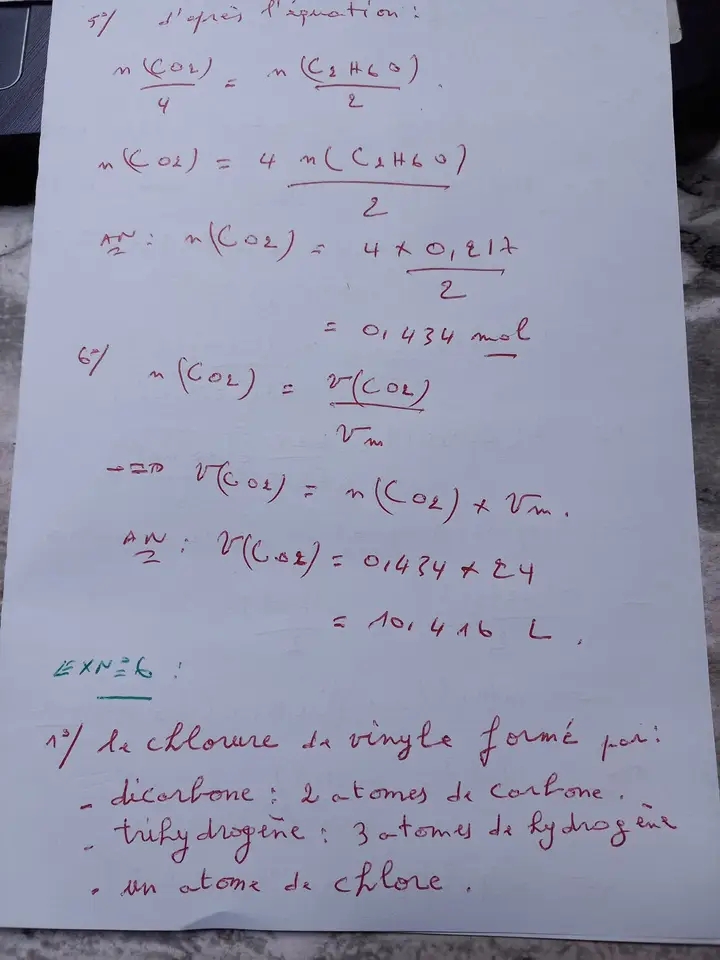 5°/ d'après l'équation :
n(CO2)/4 = n(C2H6O)/2 .
n(CO2) = 4 n(C2H6O)/2
AN : n(CO2) = 4 x 0,217/2
= 0,434 mol
6°/ n(CO2) = V(CO2)/Vm
==> V(CO2) = n(CO2) x Vm .
AN : V(CO2) = 0,434 x 24
= 10,416 L .
EXN°6 :
1°/ le chlorure de vinyle formé par :
- dicarbone : 2 atomes de carbone .
- trihydrogène : 3 atomes de hydrogène
. un atome de chlore .